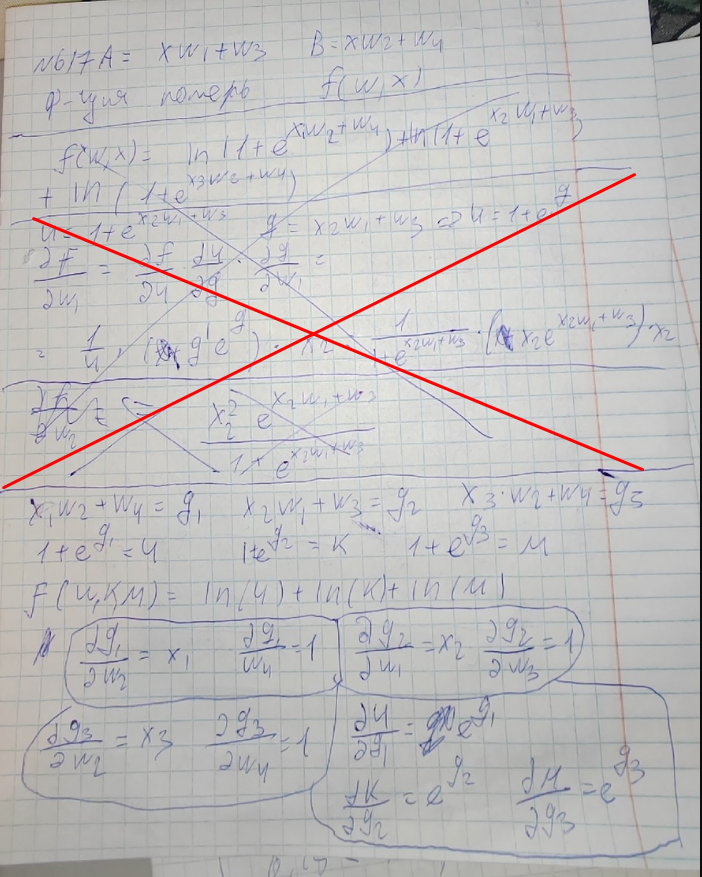 N617 A = xw₁+w₃ B = xw₂+w₄
Ф-ция потерь f(w,x)
f(w,x) = ln(1+e^(x₁w₂+w₄)) + ln(1+e^(x₂w₁+w₃))
+ ln(1+e^(x₃w₂+w₄))
u = 1+e^(x₂w₁+w₃) g = x₂w₁+w₃ => u = 1+e^g
∂f/∂w₁ = ∂f/∂u · ∂u/∂g · ∂g/∂w₁ =
= 1/u · (g'e^g) · x₂ 1/(1+e^(x₂w₁+w₃)) · (x₂e^(x₂w₁+w₃)) · x₂
∂w₂ = x₂² e^(x₂w₁+w₃) / (1+e^(x₂w₁+w₃))
x₁w₂+w₄ = g₁ x₂w₁+w₃ = g₂ x₃·w₂+w₄ = g₃
1+e^(g₁) = u 1+e^(g₂) = K 1+e^(g₃) = M
f(u,K,M) = ln(u) + ln(K) + ln(M)
∂g₁/∂w₂ = x₁ ∂g₁/w₄ = 1 ∂g₂/∂w₁ = x₂ ∂g₂/∂w₃ = 1
∂g₃/∂w₂ = x₃ ∂g₃/∂w₄ = 1 ∂u/∂g₁ = e^(g₁)
∂K/∂g₂ = e^(g₂) ∂M/∂g₃ = e^(g₃)